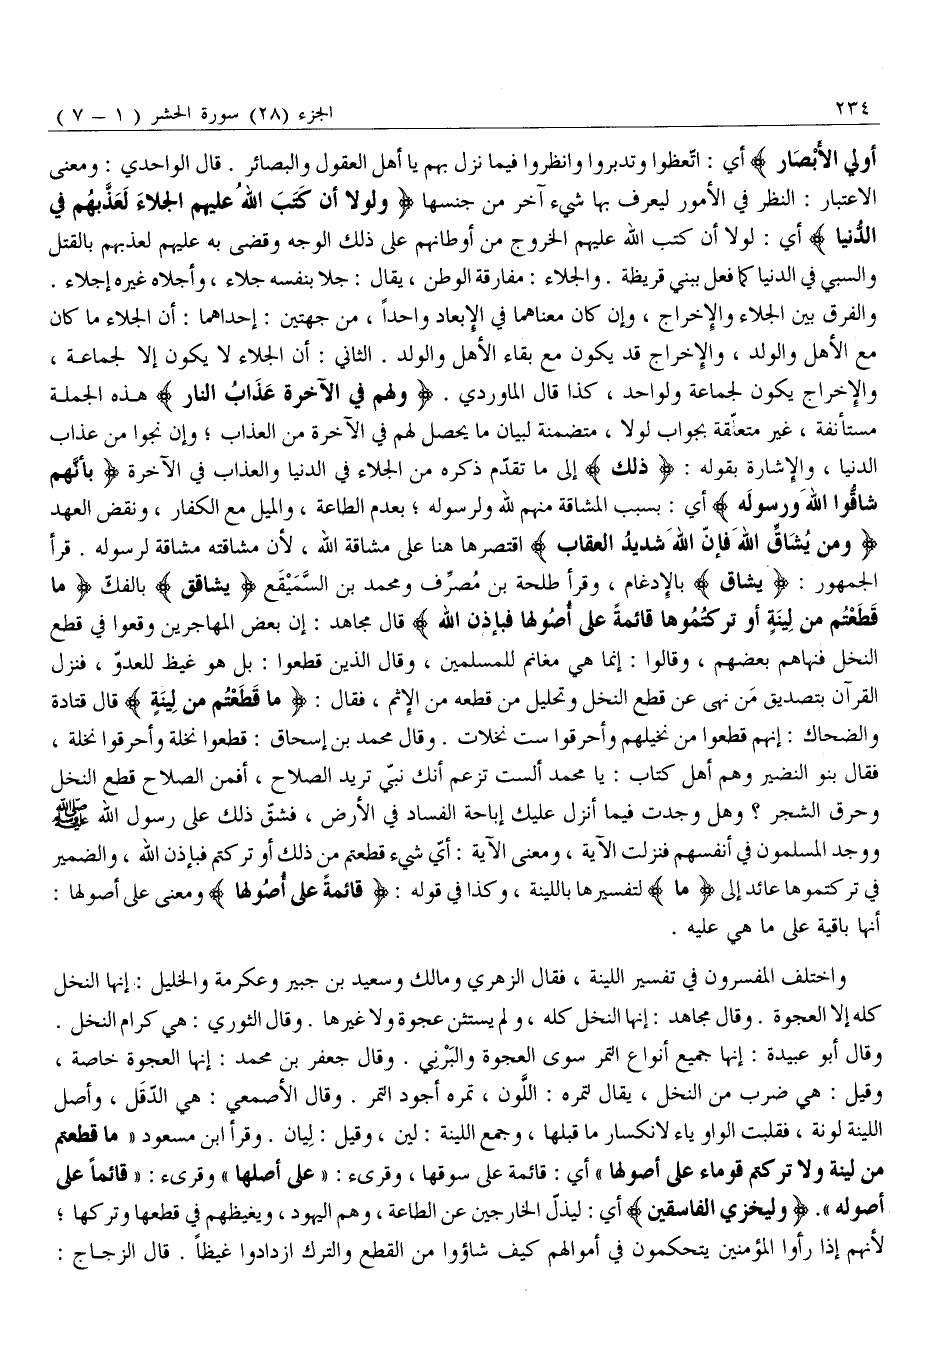 ٢٣٤ الجزء (٢٨) سورة الحشر ( ١ – ٧ )
أولي الأَبْصَار ﴾ أي : اتّعظوا وتدبروا وانظروا فيما نزل بهم يا أهل العقول والبصائر . قال الواحدي : ومعنى
الاعتبار : النظر في الأمور ليعرف بها شيء آخر من جنسها ﴿ ولولا أن كَتَبَ اللهُ عليهم الجلاءَ لَعَذَّبهُم في
الدُّنيا ﴾ أي : لولا أن كتب الله عليهم الخروج من أوطانهم على ذلك الوجه وقضى به عليهم لعذبهم بالقتل
والسبي في الدنيا كما فعل ببني قريظة . والجلاء : مفارقة الوطن ، يقال : جلا بنفسه جلاء ، وأجلاه غيره إجلاء .
والفرق بين الجلاء والإخراج ، وإن كان معناهما في الإبعاد واحداً ، من جهتين : إحداهما : أن الجلاء ما كان
مع الأهل والولد ، والإخراج قد يكون مع بقاء الأهل والولد . الثاني : أن الجلاء لا يكون إلا لجماعة ،
والإخراج يكون لجماعة ولواحد ، كذا قال الماوردي . ﴿ ولهم في الآخرة عَذَابُ النار ﴾ هذه الجملة
مستأنفة ، غير متعلّقة بجواب لولا ، متضمنة لبيان ما يحصل لهم في الآخرة من العذاب ؛ وإن نجوا من عذاب
الدنيا ، والإشارة بقوله : ﴿ ذلك ﴾ إلى ما تقدّم ذكره من الجلاء في الدنيا والعذاب في الآخرة ﴿ بأنَّهم
شاقُّوا اللهَ ورسولَه ﴾ أي : بسبب المشاقة منهم لله ولرسوله ؛ بعدم الطاعة ، والميل مع الكفار ، ونقض العهد
﴿ ومن يُشاقِّ اللهَ فإنّ اللهَ شديدُ العقاب ﴾ اقتصرها هنا على مشاقة الله ، لأن مشاقته مشاقة لرسوله . قرأ
الجمهور : ﴿ يشاق ﴾ بالإدغام ، وقرأ طلحة بن مُصرِّف ومحمد بن السَّمَيْقَع ﴿ يشاقق ﴾ بالفكّ ﴿ ما
قَطَعْتُم من لِينَةٍ أو تركتُمُوها قائمةً على أُصُولها فبإذن الله ﴾ قال مجاهد : إن بعض المهاجرين وقعوا في قطع
النخل فنهاهم بعضهم ، وقالوا : إنما هي مغانم للمسلمين ، وقال الذين قطعوا : بل هو غيظ للعدوّ ، فنزل
القرآن بتصديق مَن نهى عن قطع النخل وتحليل من قطعه من الإثم ، فقال : ﴿ ما قَطَعْتُم من لِينَةٍ ﴾ قال قتادة
والضحاك : إنهم قطعوا من نخيلهم وأحرقوا ست نخلات . وقال محمد بن إسحاق : قطعوا نخلة وأحرقوا نخلة ،
فقال بنو النضير وهم أهل كتاب : يا محمد ألست تزعم أنك نبيّ تريد الصلاح ، أفمن الصلاح قطع النخل
وحرق الشجر ؟ وهل وجدت فيما أنزل عليك إباحة الفساد في الأرض ، فشقّ ذلك على رسول الله ﷺ
ووجد المسلمون في أنفسهم فنزلت الآية ، ومعنى الآية : أيّ شيء قطعتم من ذلك أو تركتم فبإذن الله ، والضمير
في تركتموها عائد إلى ﴿ ما ﴾ لتفسيرها باللينة ، وكذا في قوله : ﴿ قائمةً على أُصُولها ﴾ ومعنى على أصولها :
أنها باقية على ما هي عليه .
واختلف المفسرون في تفسير اللينة ، فقال الزهري ومالك وسعيد بن جبير وعكرمة والخليل : إنها النخل
كله إلا العجوة . وقال مجاهد : إنها النخل كله ، ولم يستثن عجوة ولا غيرها . وقال الثوري : هي كرام النخل .
وقال أبو عبيدة : إنها جميع أنواع التمر سوى العجوة والبَرْنِي . وقال جعفر بن محمد : إنها العجوة خاصة ،
وقيل : هي ضرب من النخل ، يقال لتمره : اللَّون ، تمره أجود التمر . وقال الأصمعي : هي الدّقَل ، وأصل
اللينة لونة ، فقلبت الواو ياء لانكسار ما قبلها ، وجمع اللينة : لين ، وقيل : لِيان . وقرأ ابن مسعود « ما قطعتم
من لينة ولا تركتم قوماء على أصولها » أي : قائمة على سوقها ، وقرىء : « على أصلها » وقرىء : « قائماً على
أصوله ». ﴿ وليخزي الفاسقين ﴾ أي : ليذلّ الخارجين عن الطاعة ، وهم اليهود ، ويغيظهم في قطعها وتركها ؛
لأنهم إذا رأوا المؤمنين يتحكمون في أموالهم كيف شاؤوا من القطع والترك ازدادوا غيظاً . قال الزجاج :